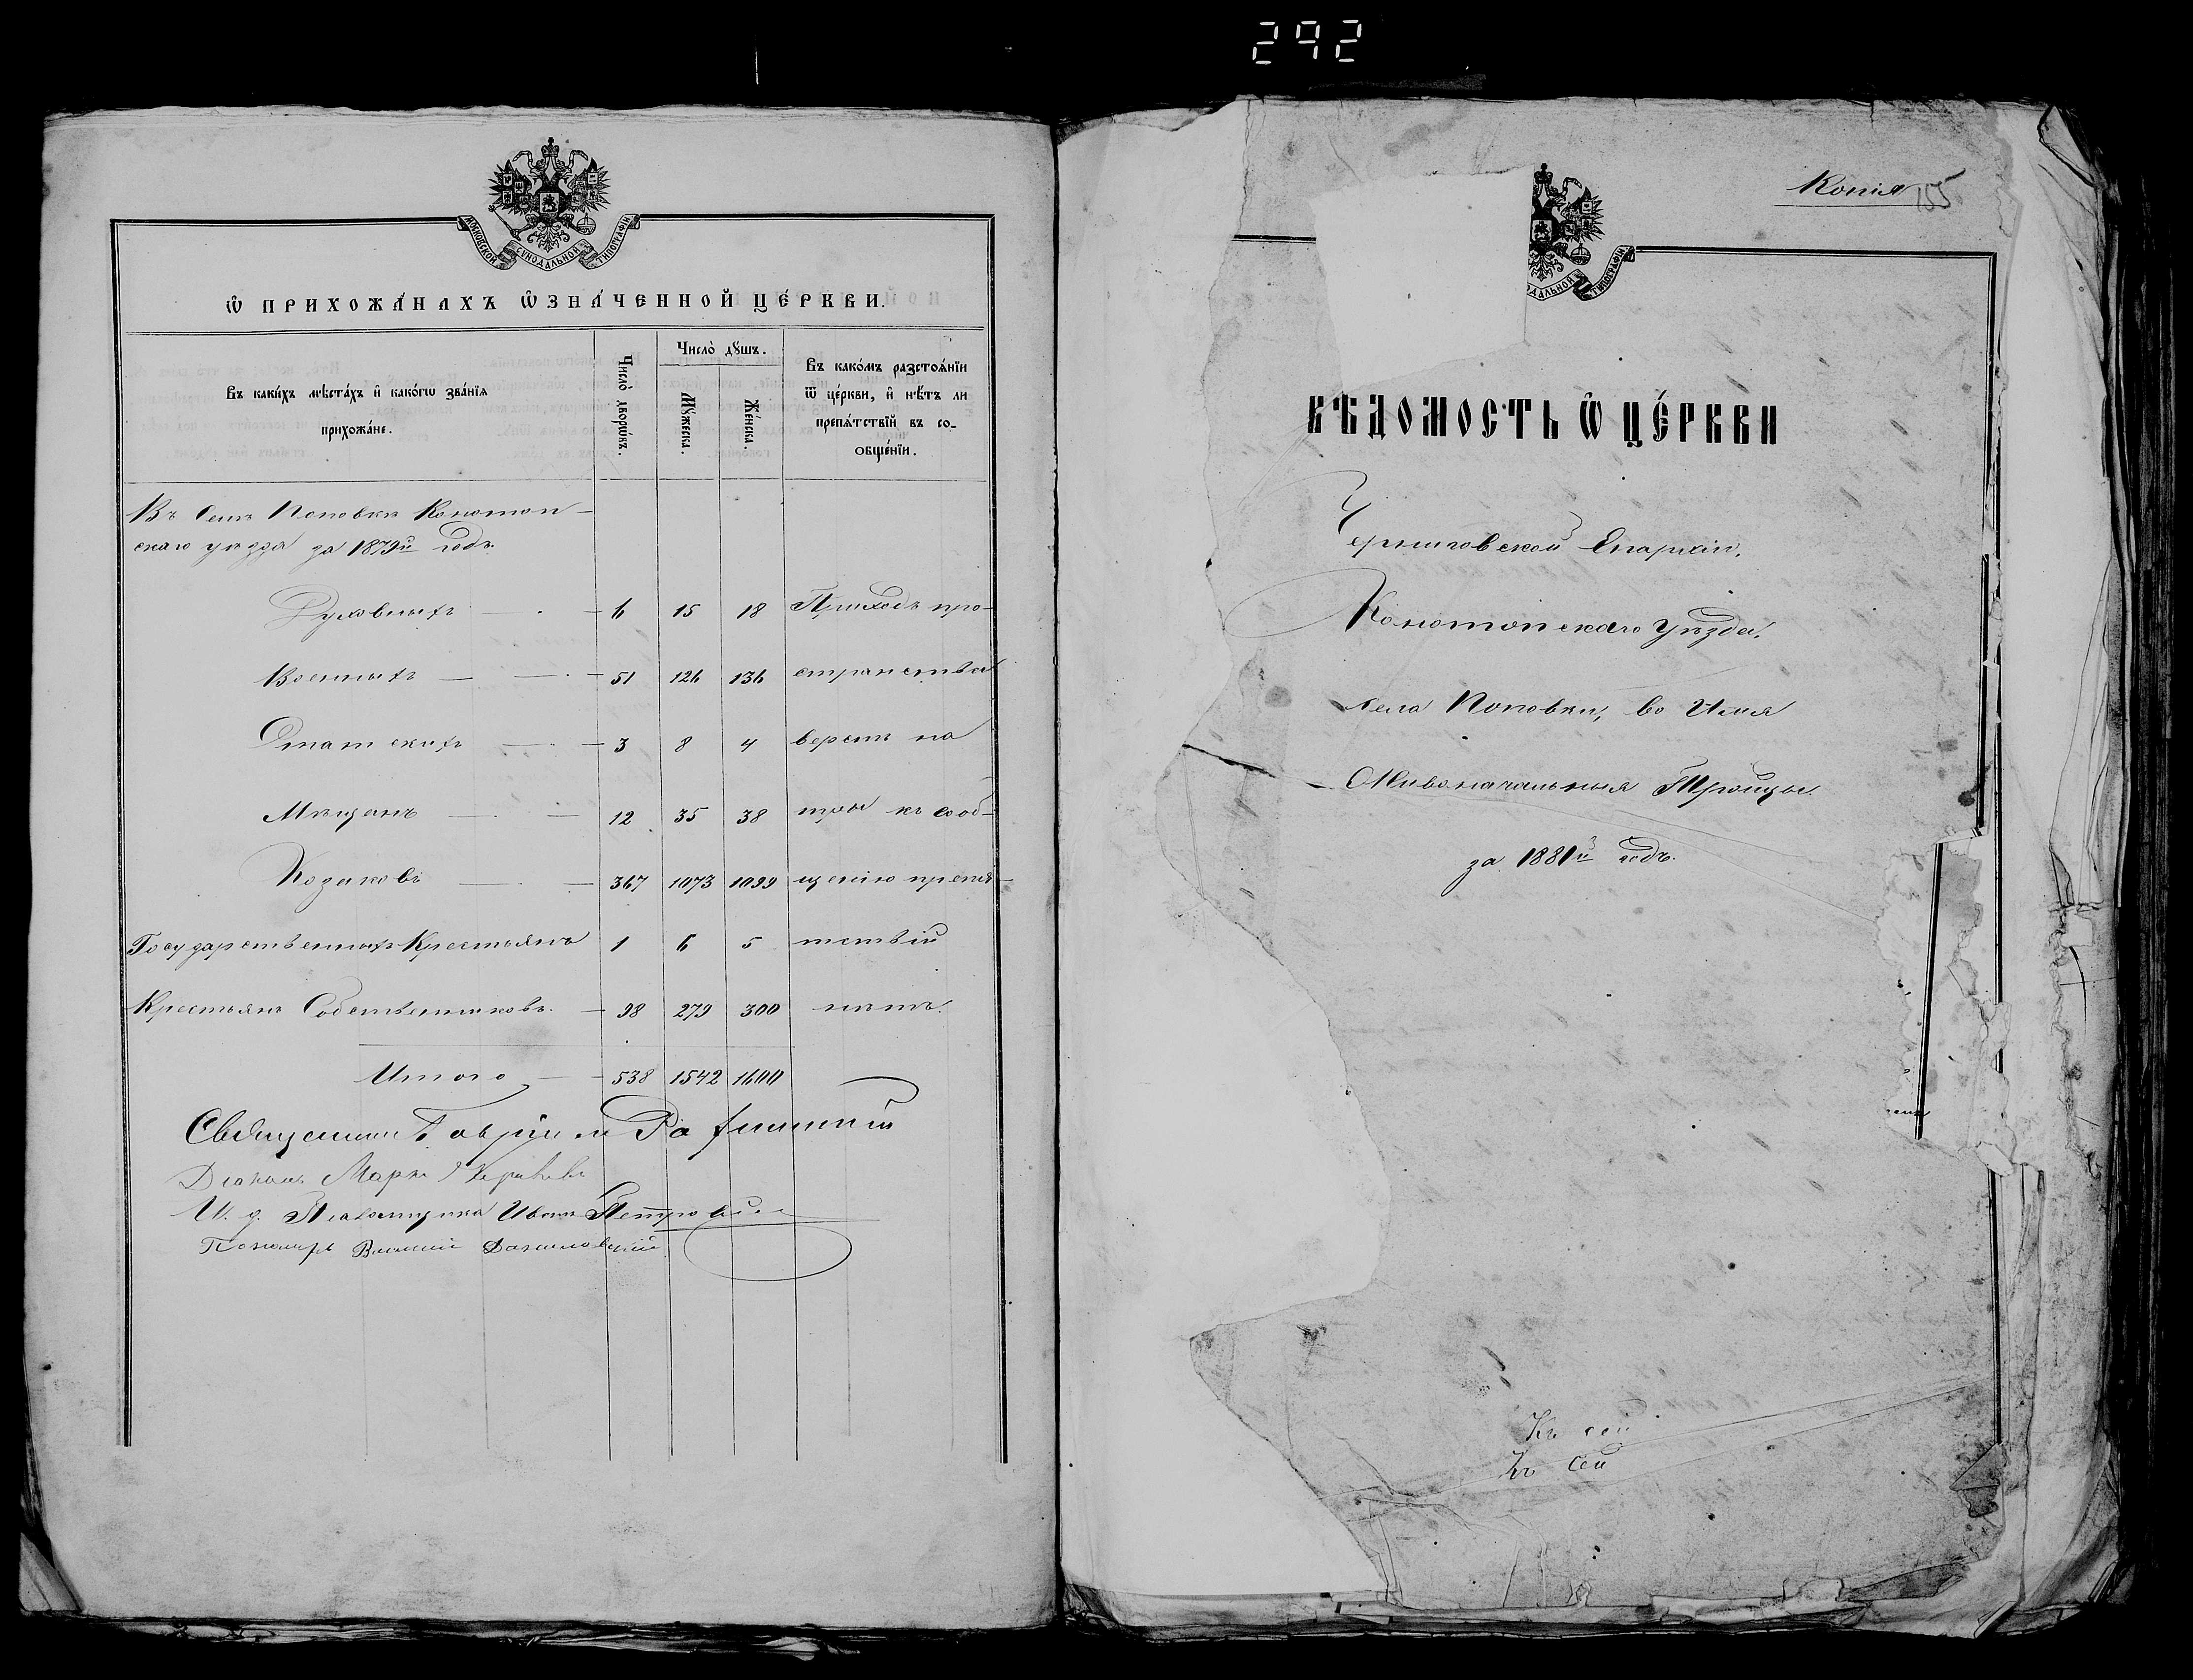 292
МОСКОВСКОЙ СѴНОДАЛЬНОЙ ТИПОГРАФІИ
Ѽ ПРИХОЖА́НАХЪ Ѽ ЗНА́ЧЕННОЙ ЦЕ́РКВИ.
Въ каки́хъ мѣста́хъ и҆ како́гѡ зва́нїѧ прихожа́не.
Число̀ дворѡ́въ.
Число̀ дꙋшъ.
Мꙋ́жеска.
Же́нска.
Въ како́мъ разстоѧ́нїи
ѿ це́ркви, и҆ нѣ́тъ ли
препѧ́тствїй въ со-
общє́нїи.
Въ Селѣ Поповкѣ Конотоп-
скаго уѣзда за 1879й годъ.
Духовныхъ — 6 15 18 Приходъ про-
Военныхъ — 51 126 136 странства
Статскихъ — 3 8 4 верстъ на
Мѣщанъ — 12 35 38 три къ сооб-
Козаковъ — 367 1073 1099 щенію препя-
Государственныхъ Крестьянъ 1 6 5 тствій
Крестьянъ Собственниковъ. — 98 279 300 нѣтъ.
Итого — 538 1542 1600
Священникъ Гавріилъ
Діаконъ Маркъ
И. д. Псаломщика Иванъ Петровскій
Пономарь Василій Даниловскій
Копія
155
ДАЛЬНОЙ ТИПОГРАФІИ
ВѢ́ДОМОСТЬ Ѽ ЦЕ́РКВИ
Черниговской Епархіи,
Конотопскаго Уѣзда,
села Поповки, во Имя
Живоначальныя Тройцы.
за 1881й годъ.
Къ сей
Къ сей